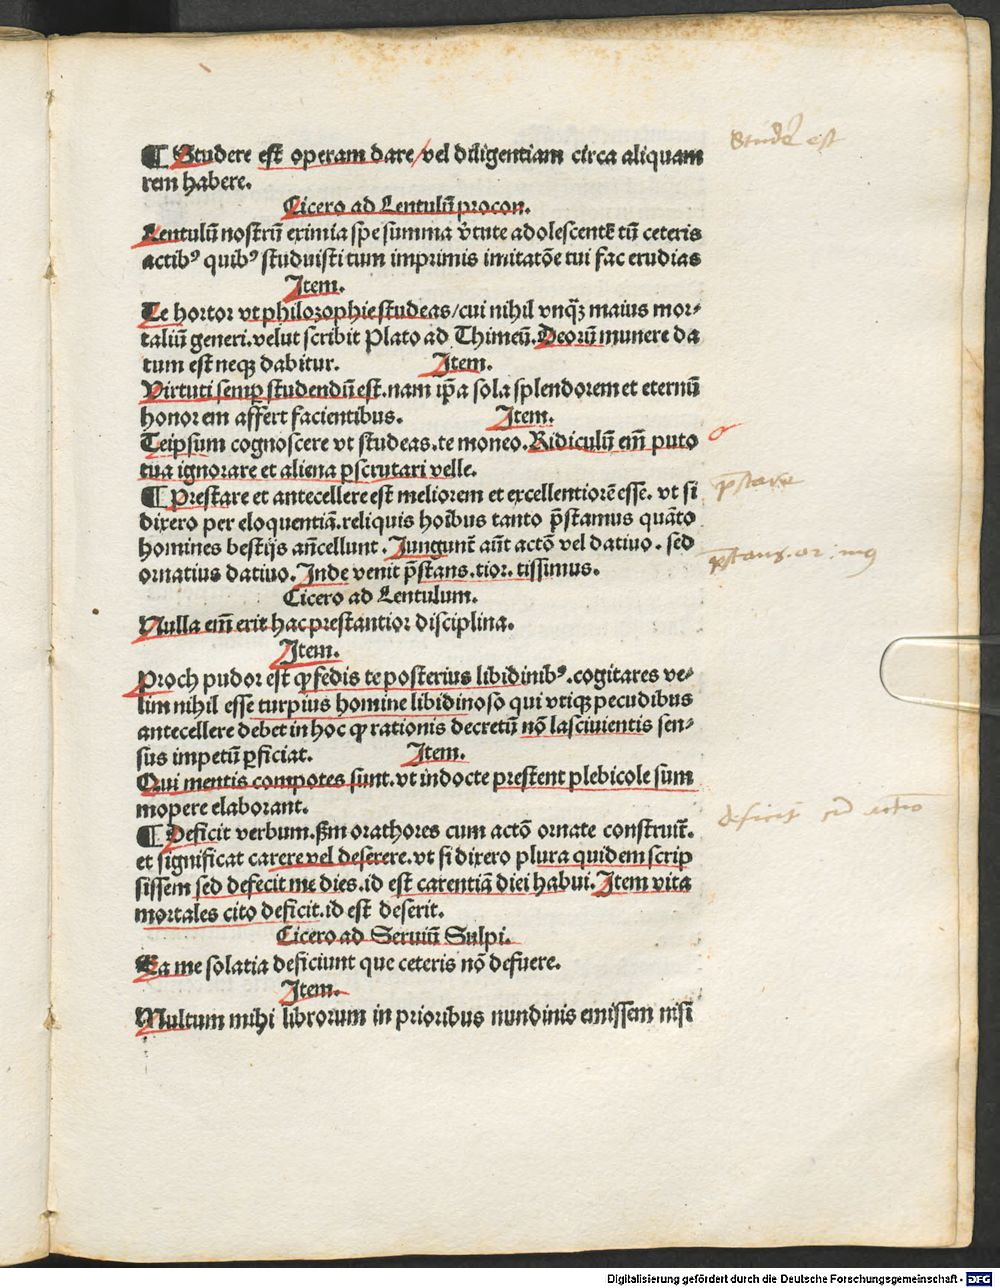 ¶ Studere est operam dare/ vel diligentiam circa aliquam
rem habere.
Studer̃ est
Cicero ad Lentulū procon.
Lentulū nostrū eximia spe summa v̓tute adolescentē tū ceteris
actibꝰ quibꝰ studuisti tum imprimis imitatōe tui fac erudias
Item.
Te hortor vt philozophie studeas/cui nihil vnqꝫ maius mor⸗
taliū generi.velut scribit Plato ad Thimeū.Deorū munere da
tum est neqꝫ dabitur. Item.
Virtuti semꝑ studendū est.nam ip̄a sola splendorem et eternū
honorem affert facientibus. Item.
Teipsum cognoscere vt studeas.te moneo.Ridiculū em̄ puto
tua ignorare et aliena ꝑscrutari velle.
¶ Prestare et antecellere est meliorem et excellentiorē esse. vt si
p̄stare
dixero per eloquentiā.reliquis hoībus tanto p̄stamus quāto
homines bestijs an̄cellunt. Jungunt̄ aūt actō vel datiuo. sed
p̄stans.or.mꝰ
ornatius datiuo. Inde venit p̄stans.tior.tissimus.
Cicero ad Lentulum.
Nulla em̄ erit hac prestantior disciplina.
Item.
Proch pudor est ꝙ fedis te posterius libidinibꝰ.cogitares ve⸗
lim nihil esse turpius homine libidinoso qui vtiqꝫ pecudibus
antecellere debet in hoc ꝙ rationis decretū nō lasciuientis sen⸗
sus impetū ꝑficiat. Item.
Qui mentis compotes sunt.vt indocte prestent plebicole sum
mopere elaborant.
¶ Deficit verbum.ẜm orathores cum actō ornate construit̄.
deficit
et significat carere vel deserere.vt si dixero plura quidem scrip
sissem sed defecit me dies.id est carentiā diei habui. Item vita
mortales cito deficit.id est deserit.
Cicero ad Seruiū Sulpi.
Ea me solatia deficiunt que ceteris nō defuere.
Item.
Multum mihi librorum in prioribus nundinis emissem nisi
Digitalisierung gefördert durch die Deutsche Forschungsgemeinschaft - DFG